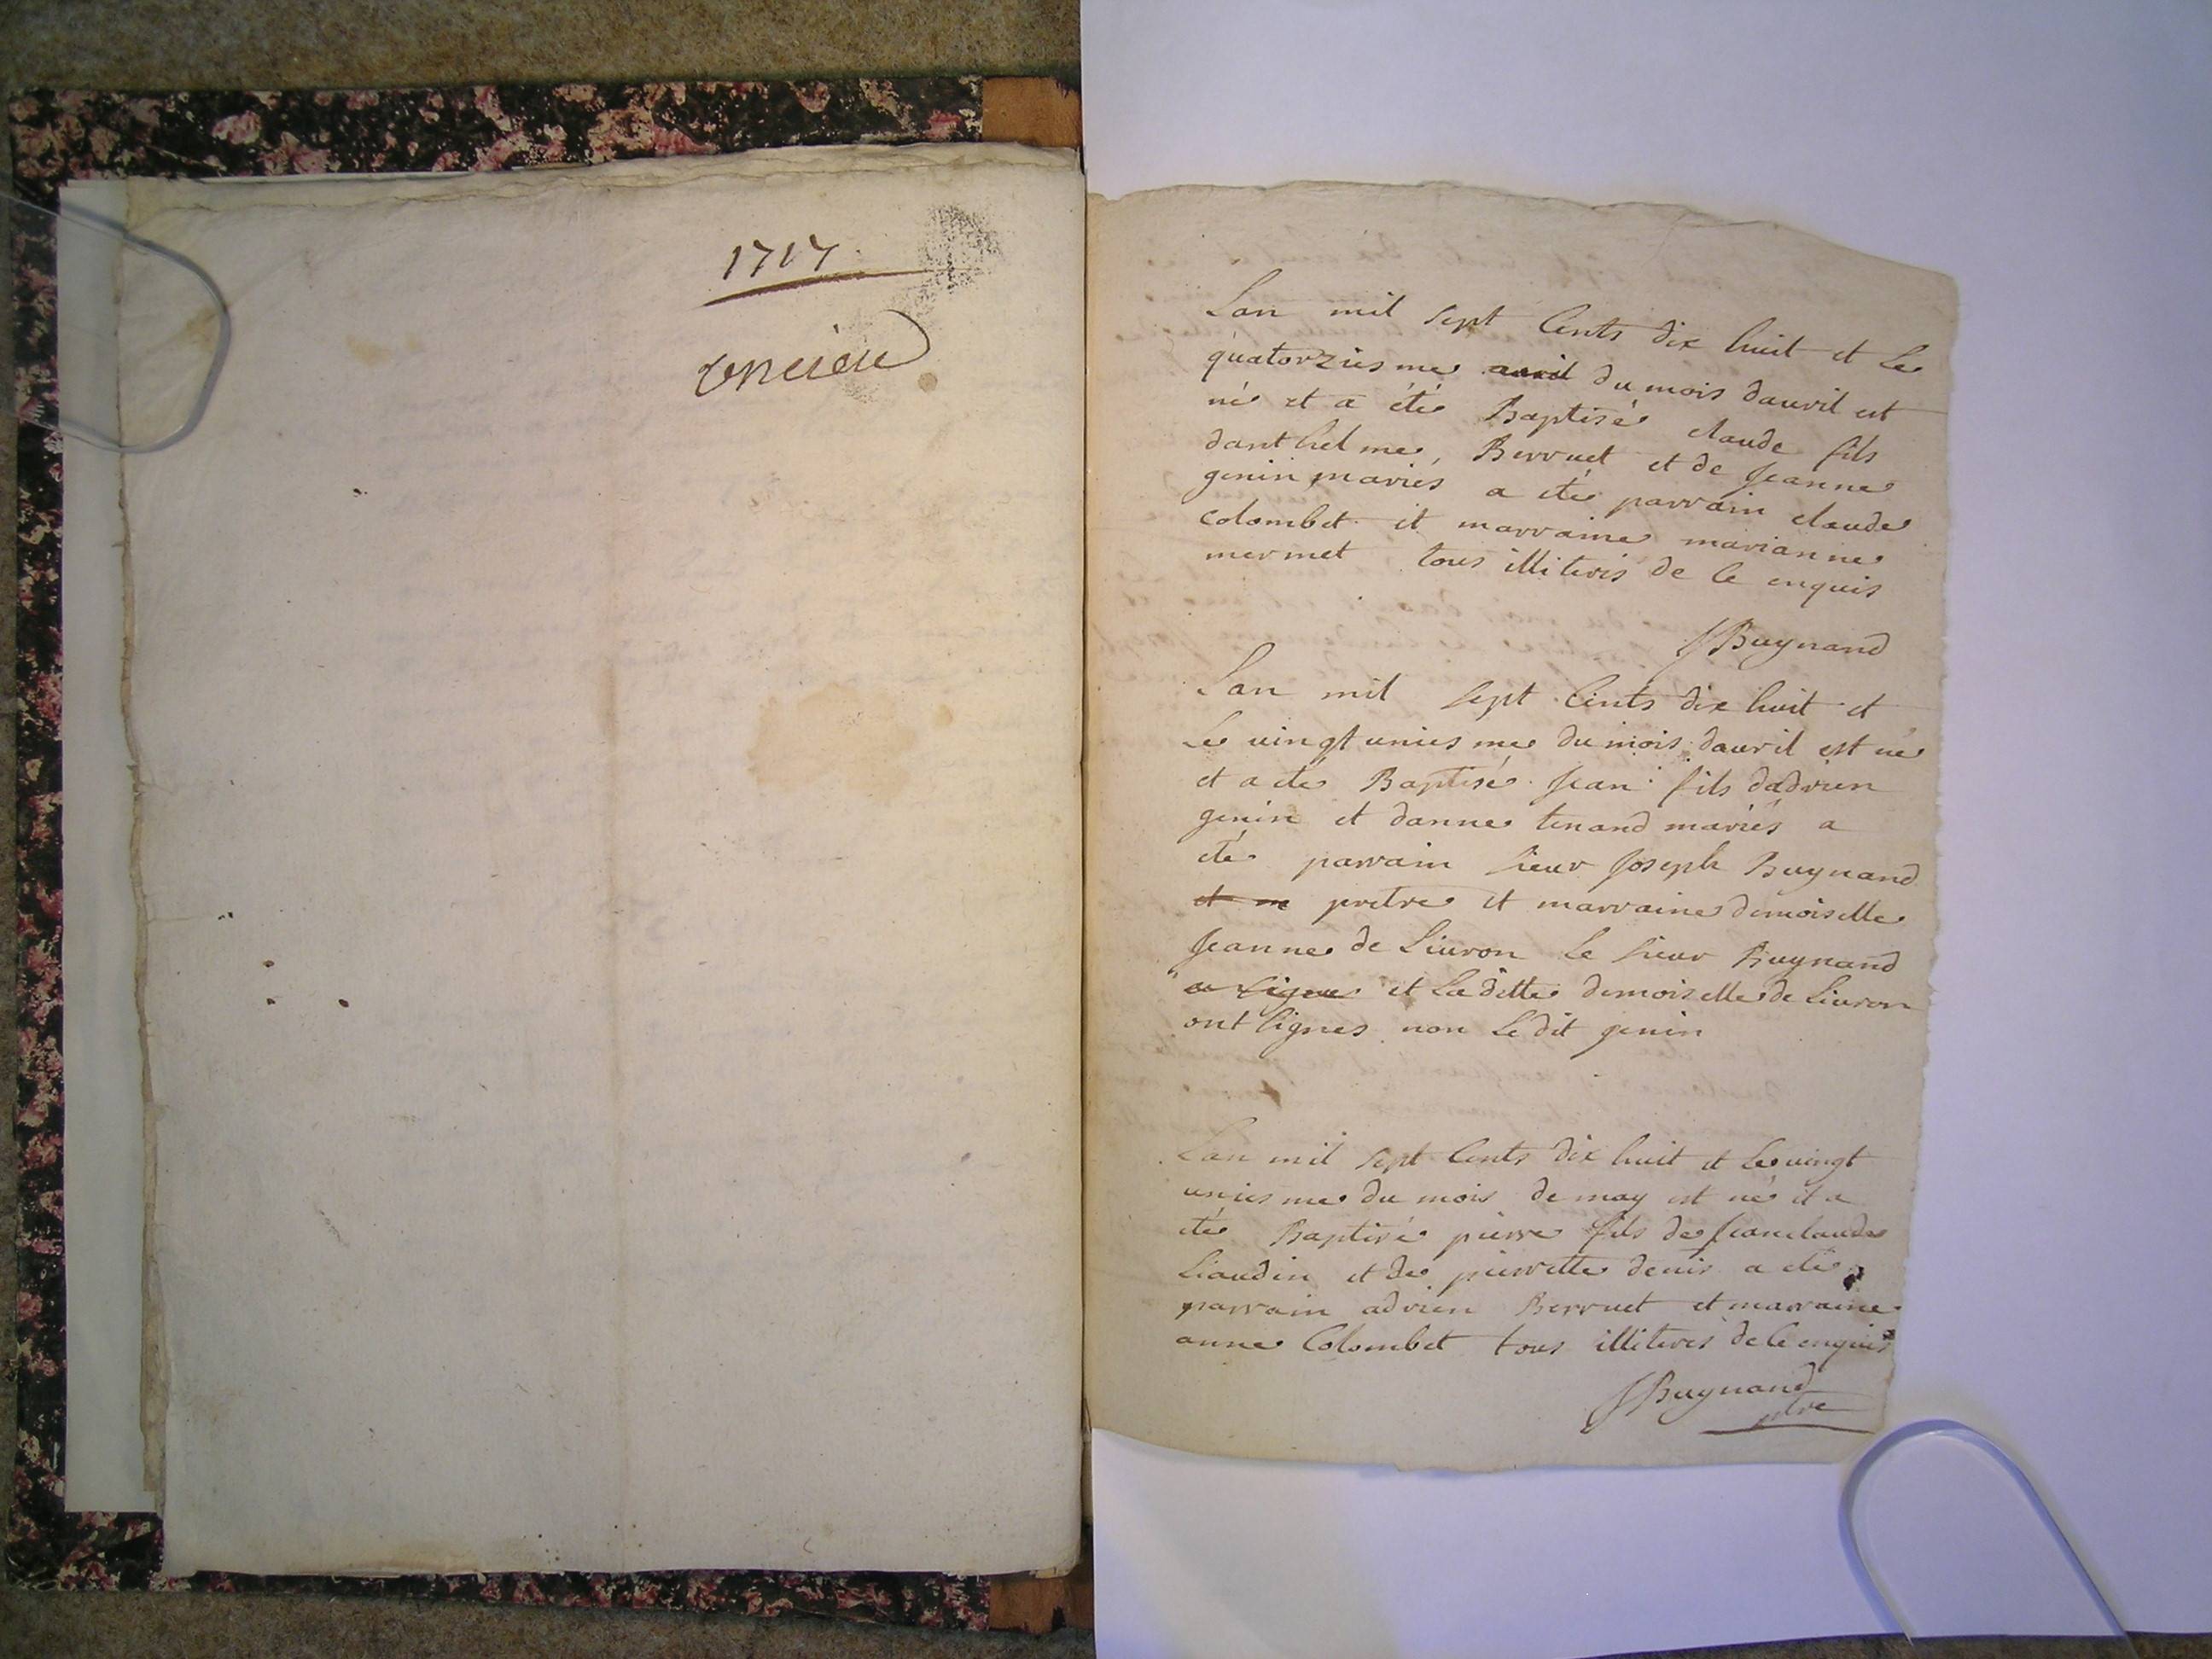 1717
Lan mil sept Cents dix huit et Le
quatorziesme auril du mois dauril est
né et a été Baptisé claude fils
danthelme, Berruet et de Jeanne
genin mariés a été parrain claude
colombet et marraine marianne
mermet tous illiterés de Ce enquis
JBuynand
Lan mil sept Cents dix huit et
Le uingt uniesme du mois dauril est né
et a été Baptisé Jean fils dadrien
genin et danne tenand mariés a
été parrain sieur Joseph Buynand
et m pretre et marraine demoiselle
Jeanne de Liuron Le sieur Buynand
a signe et La ditte demoiselle de Liuron
ont signés non Le dit genin
Lan mil sept Cents dix huit et Le uingt
uniesme du mois de may est né et a
été Baptisé pierre fils de Jean claude
Liaudin et de pierrette denis a été
parrain adrien Berruet et marraine
anne Colombet tous illiterés de Ce enquis
JBuynand
ptre